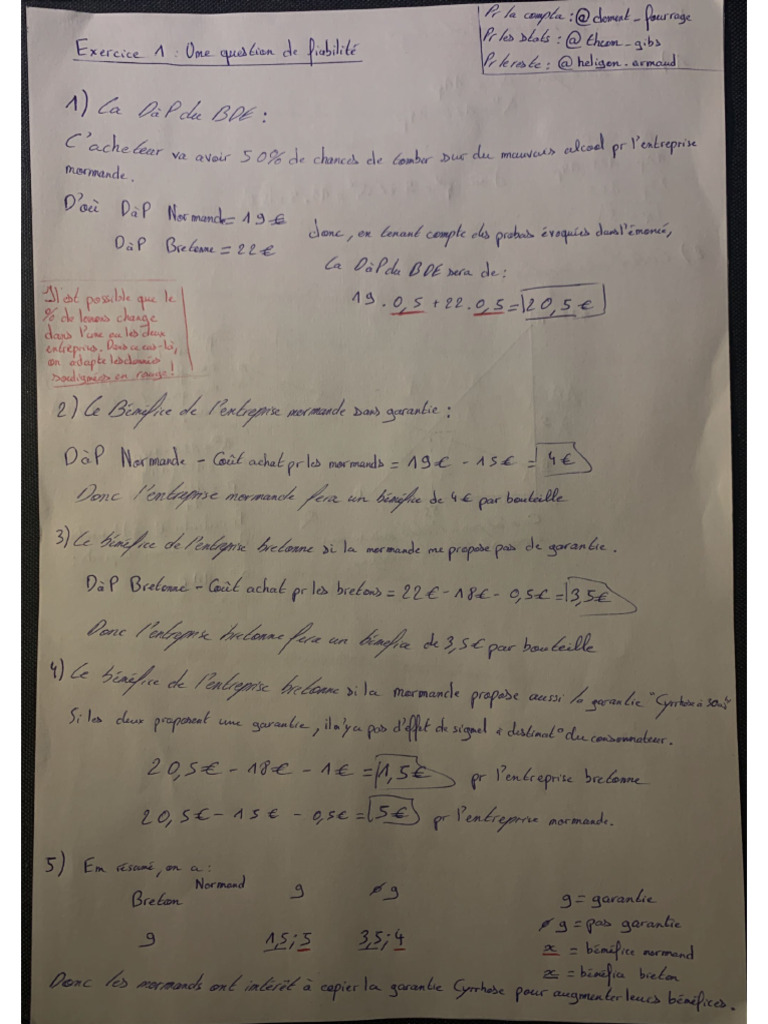 Exercice 1 : Une question de fiabilité
Pr la compta : @clement_fourrage
Pr les stats : @theon_gibs
Pr le reste : @heligon.armaud
1) La DàP du BDE :
L'acheteur va avoir 50% de chances de tomber sur du mauvais alcool pr l'entreprise
normande.
D'où DàP Normande = 19€
DàP Bretonne = 22€
donc, en tenant compte des probas évoquées dans l'énoncé,
la DàP du BDE sera de :
19 . 0,5 + 22 . 0,5 = 20,5 €
Il est possible que le
% de lemons change
dans l'une ou les deux
entreprises. Dans ce cas-là,
on adapte les données
soulignées en rouge !
2) Le Bénéfice de l'entreprise normande sans garantie :
DàP Normande - Coût achat pr les normands = 19€ - 15€ = 4€
Donc l'entreprise normande fera un bénéfice de 4€ par bouteille
3) Le bénéfice de l'entreprise bretonne si la normande ne propose pas de garantie.
DàP Bretonne - Coût achat pr les bretons = 22€ - 18€ - 0,5€ = 3,5€
Donc l'entreprise bretonne fera un bénéfice de 3,5€ par bouteille
4) Le bénéfice de l'entreprise bretonne si la normande propose aussi la garantie "Cyrrhose à 50ans"
Si les deux proposent une garantie, il n'y a pas d'effet de signal à destinat° du consommateur.
20,5€ - 18€ - 1€ = 1,5€ pr l'entreprise bretonne
20,5€ - 15€ - 0,5€ = 5€ pr l'entreprise normande.
5) En résumé, on a :
Normand g ø g
Breton
g 1,5 ; 5 3,5 ; 4
g = garantie
ø g = pas garantie
x = bénéfice normand
x = bénéfice breton
Donc les normands ont intérêt à copier la garantie Cyrrhose pour augmenter leurs bénéfices.